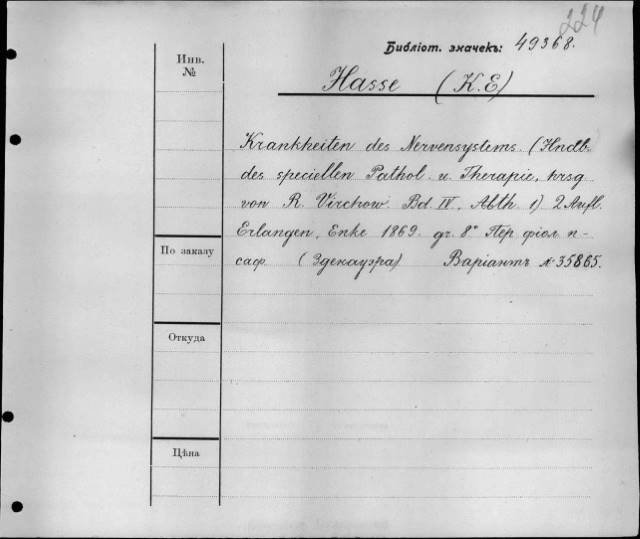 224
Библіот. значекъ: 49368.
Инв.
№
Hasse (K.E)
Krankheiten des Nervensystems. (Hndb.
des speciellen Pathol. u. Therapie, hrsg
von R. Virchow. Bd. IV, Abth. 1) 2 Aufl.
Erlangen, Enke 1869. gr. 8° Пер фіол п-
саф. (Эдекауэра) Варіантъ № 35865.
По заказу
Откуда
Цѣна